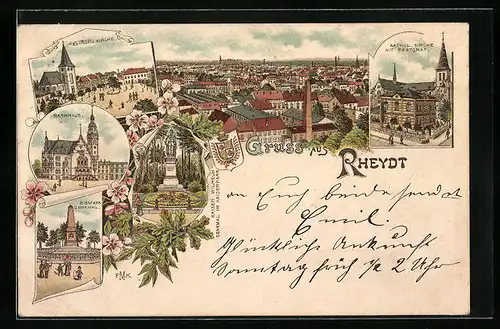 EVANGEL. KIRCHE
KATHOL. KIRCHE
MIT PASTORAT
RATHHAUS
KAISER WILHELM
DENKMAL IM KAISERPARK
Gruss aus
RHEYDT
BISMARK
DENKMAL
PMK.
an Euch beide sendet
Emil.
Ankunft
Sonntag früh 1/2 2 Uhr